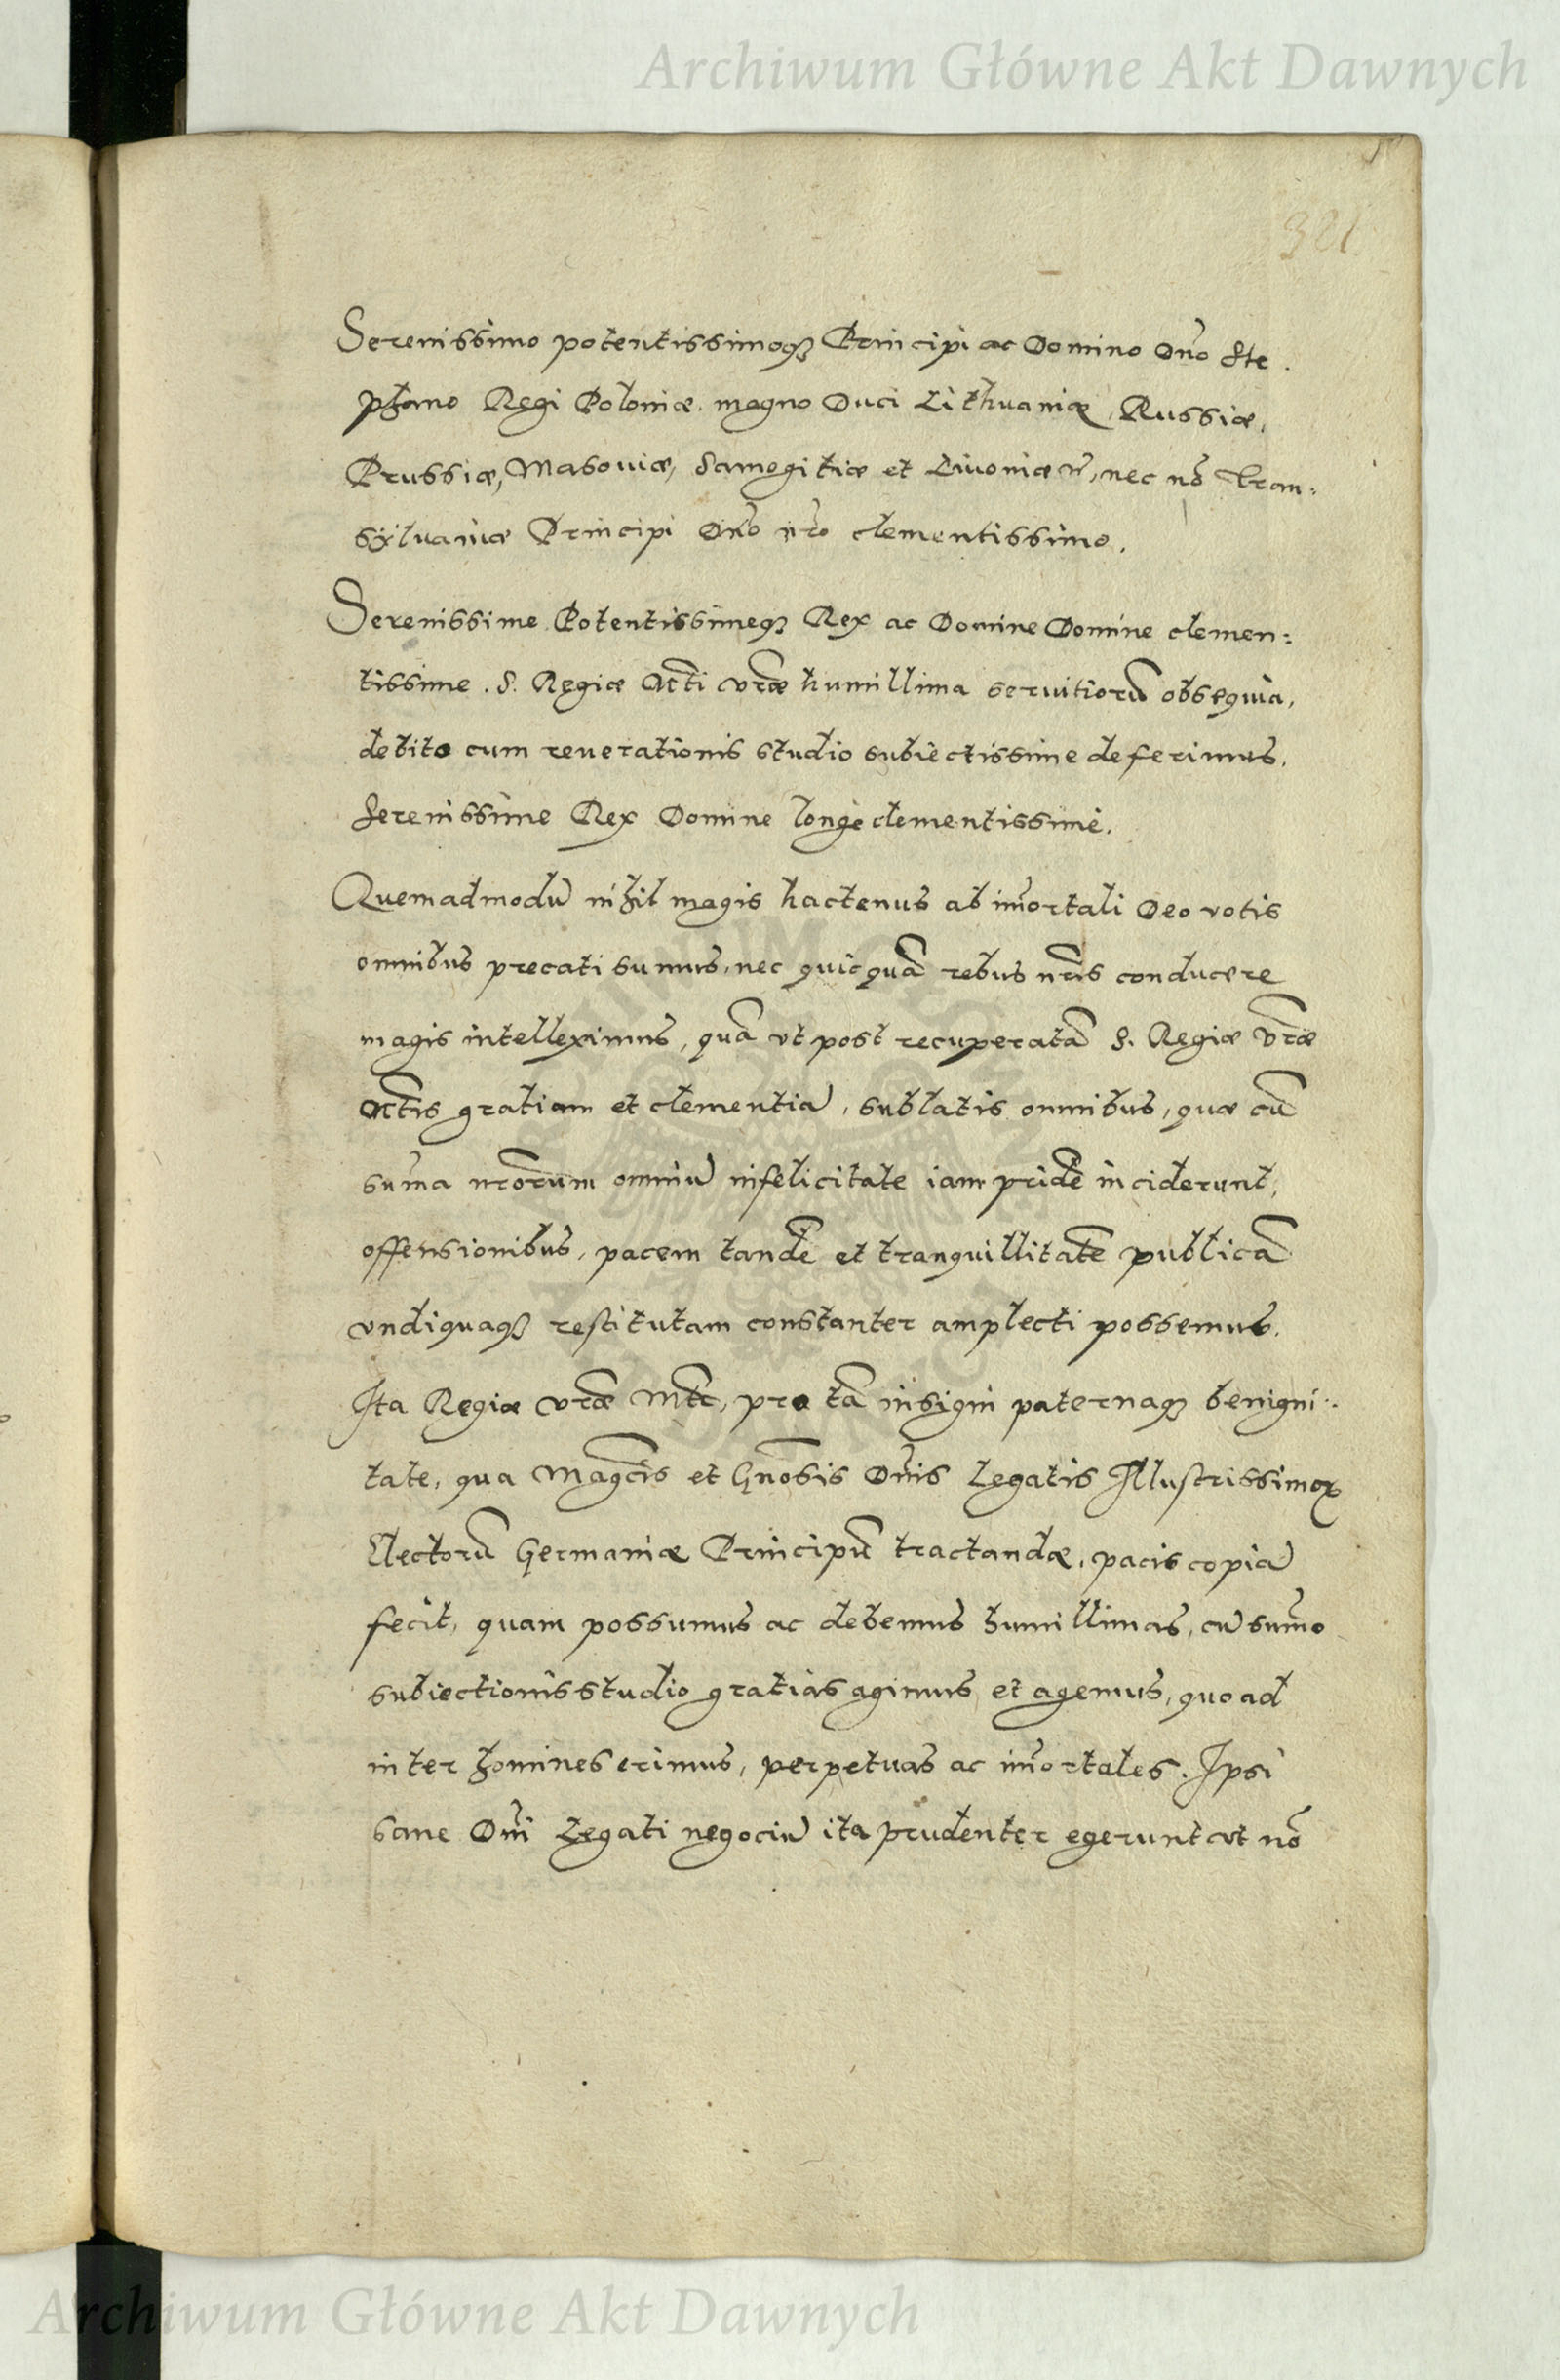 Archiwum Główne Akt Dawnych
321
Serenissimo potentissimoqꝫ Principi ac Domino Dn̄o Ste
phano Regi Poloniæ. magno Duci Lithuaniæ, Russiæ,
Prussiæ, Masouiæ, Samogitiæ et Liuoniæ, nec nō Tran:
syluaniæ Principi Dn̄o nr̄o clementissimo.
Serenissime Potentissimeqꝫ Rex ac Domine Domine clemen:
tissime. S. Regiæ Mt̄i vr̄æ humillima seruitiorū obsequia,
debito cum reuerationis studio subiectissime deferimus.
Serenissime Rex Domine longè clementissime.
Quemadmodū nihil magis hactenus ab im̄ortali Deo votis
omnibus precati sumus, nec quicquā rebus nr̄is conducere
magis intelleximus, quā vt post recuperatā S. Regiæ vr̄æ
Mt̄is gratiam et clementiā, sublatis omnibus, quæ cū
sum̄a nr̄orum omniū infelicitate iam pridē inciderunt,
offensionibus, pacem tandē et tranquillitatē publicā
vndiquaqꝫ restitutam constanter amplecti possemus.
Ita Regiæ vr̄æ Mt̄i, pro tā insigni paternaqꝫ benigni:
tate, qua Magc̄is et Gn̄osis Dn̄is Legatis Illustrissimoꝝ
Electorū Germaniæ Principū tractandæ, pacis copiā
fecit, quam possumus ac debemus humillimas, cū sum̄o
subiectionis studio gratias agimus et agemus, quoad
inter homines erimus, perpetuas ac im̄ortales. Ipsi
sane Dn̄i Legati negociū ita prudenter egerunt vt nō
Archiwum Główne Akt Dawnych